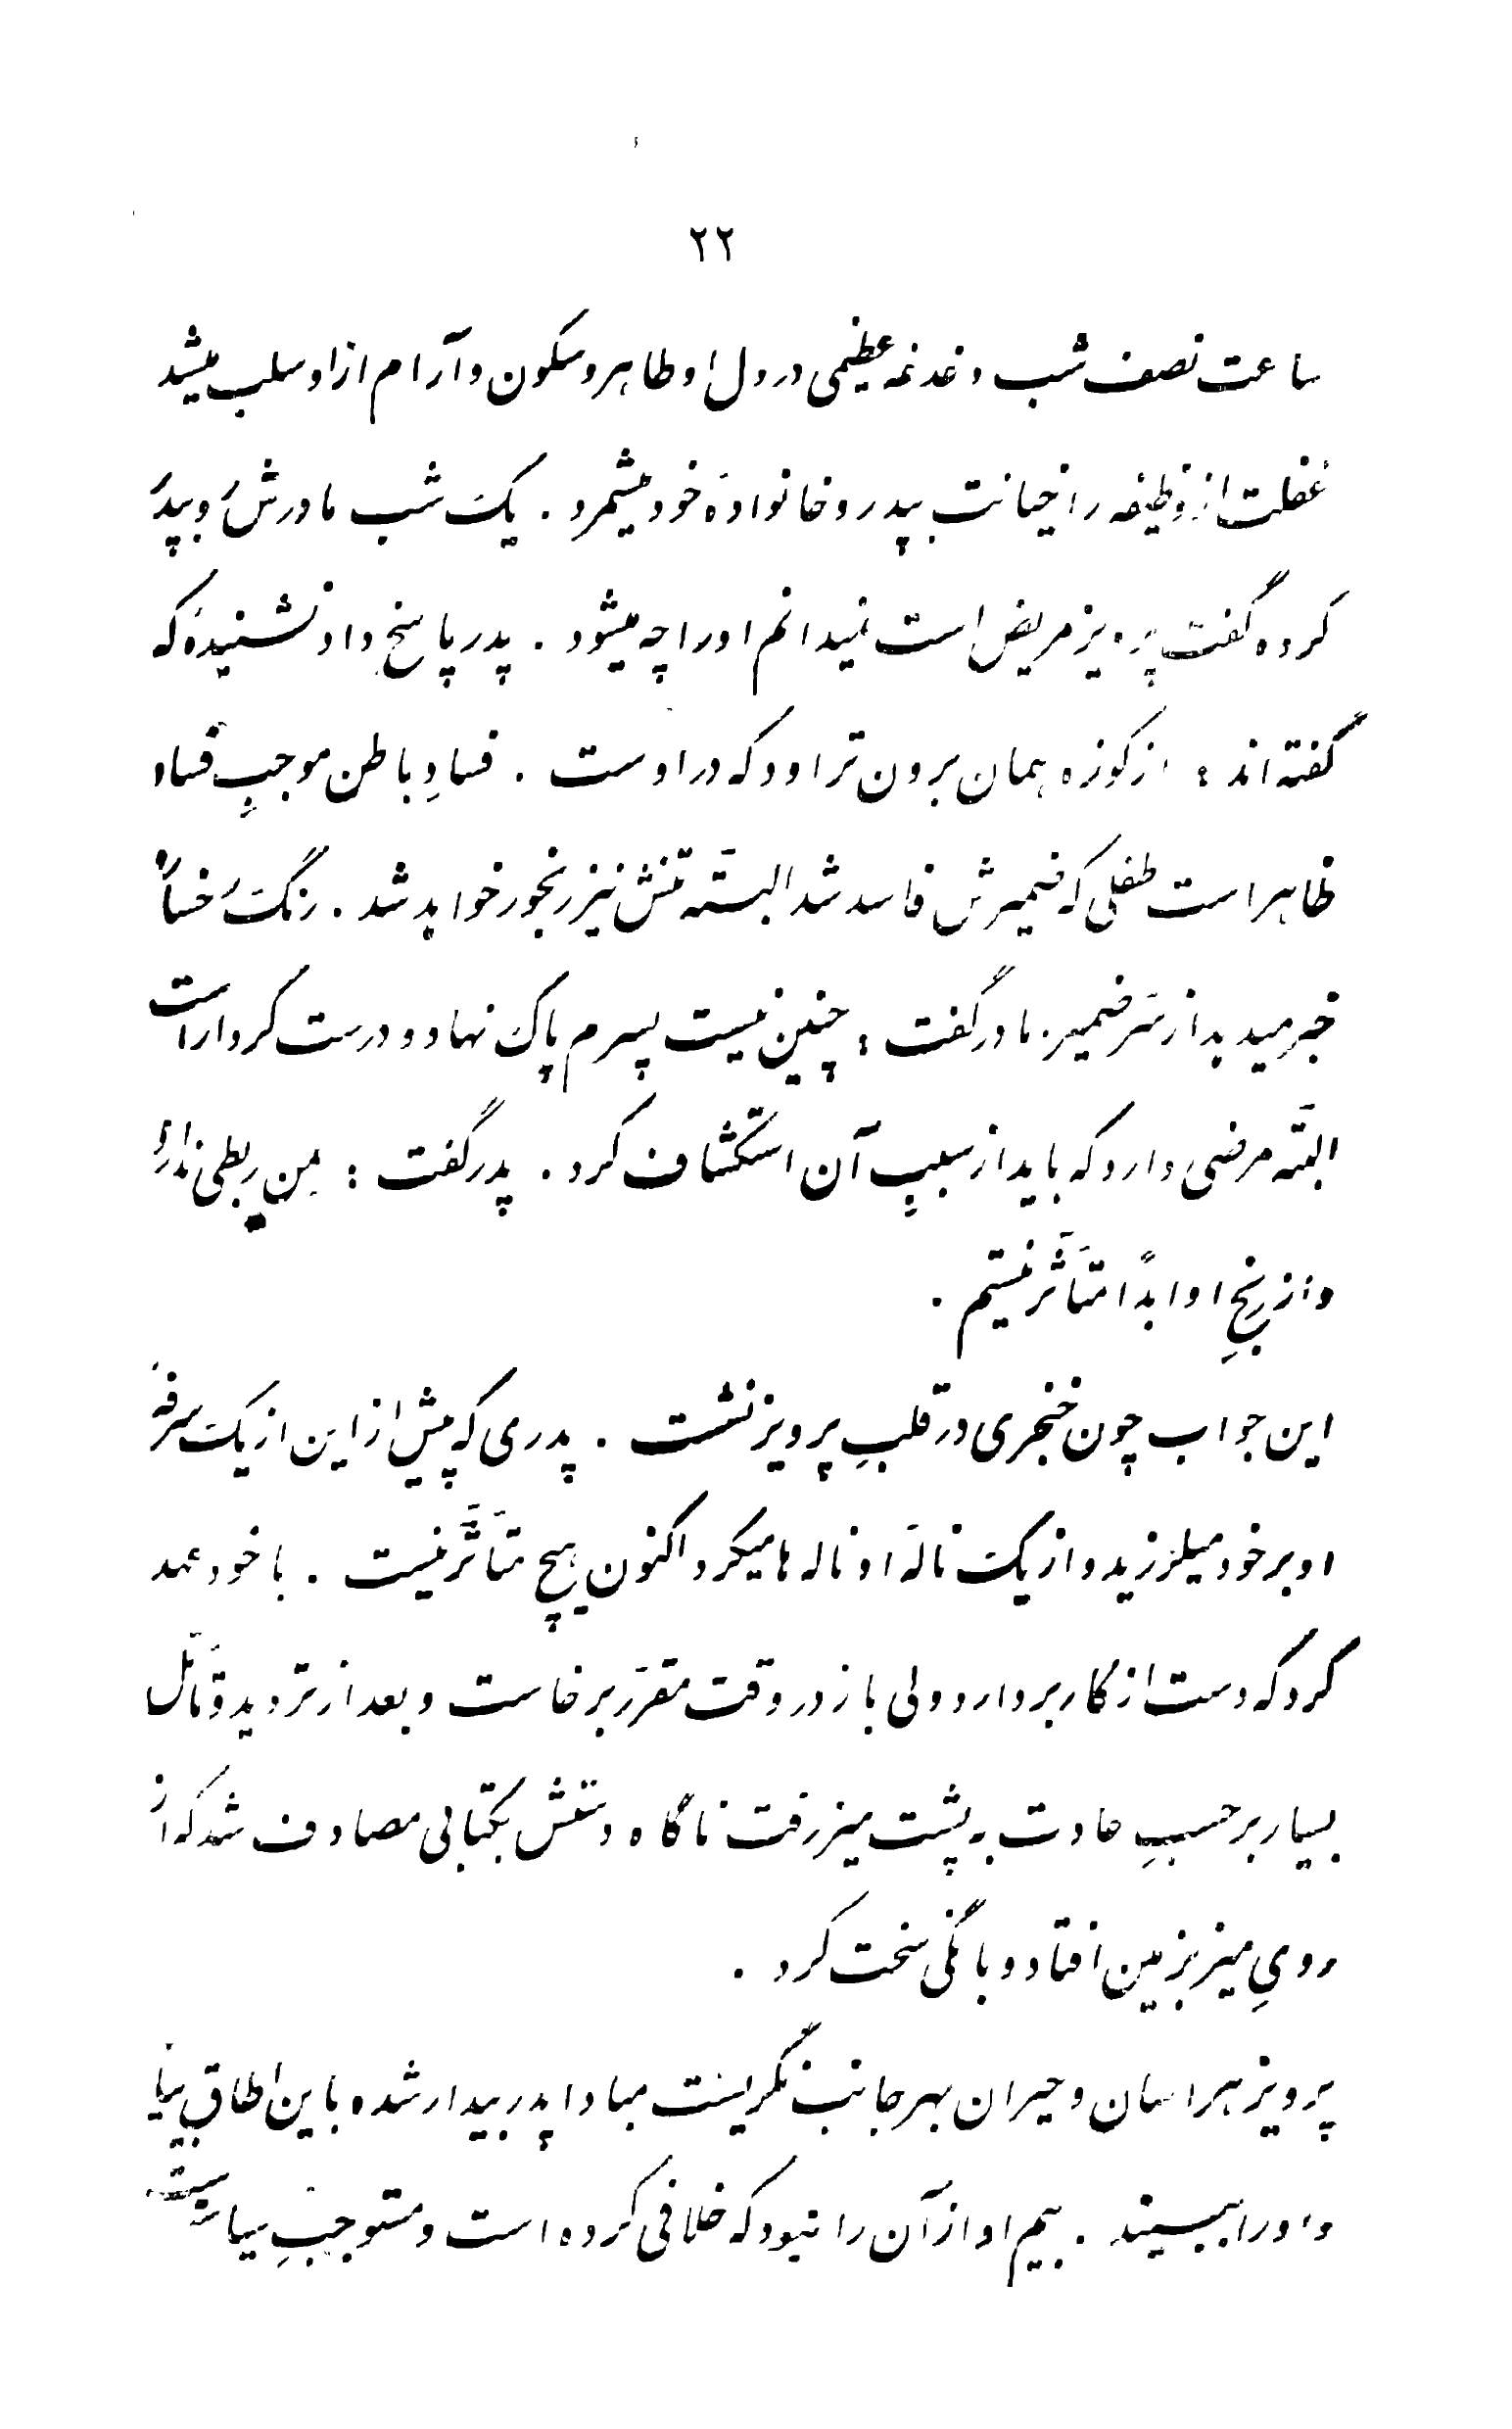 ۲۲
ساعت نصف شب دغدغه عظیمی در دل او ظاهر و سکون و آرام از او سلب میشد
غفلت از وظیفه را خیانت بپدر و خانوادهٔ خود میشمرد . یک شب مادرش رو بپدر
کرده گفت پرویز مریض است نمیدانم او را چه میشود . پدر پاسخ داد نشنیدهٔ که
گفته‌اند : از کوزه همان برون تراود که در اوست . فسادِ باطن موجبِ فساد
ظاهر است طفلی که ضمیرش فاسد شد البتّه تنش نیز رنجور خواهد شد . رنگ رخساره
خبر میدهد از سَرِ ضمیر . مادر گفت : چنین نیست پسرم پاک نهاد و درست کردار است
البتّه مرضی دارد که باید از سببِ آن استکشاف کرد . پدر گفت : بمن ربطی ندارد
و از رنجِ او ابداً متأثّر نیستم .
این جواب چون خنجری در قلبِ پرویز نشست . پدری که پیش از این از یک سرفهٔ
او بر خود میلرزید و از یک نالهٔ او ناله‌ها میکرد اکنون هیچ متأثّر نیست . با خود عهد
کرد که دست از کار بردارد ولی باز در وقت مقرّر برخاست و بعد از تردید و تأمّل
بسیار بر حسبِ عادت به پشت میز رفت ناگاه دستش بکتابی مصادف شد که از
رویِ میز بزمین افتاد و بانگی سخت کرد .
پرویز هراسان و حیران بهر جانب نگریست مبادا پدر بیدار شده باین اطاق بیاید
و او را ببیند . بیم او از آن را نبود که خلافی کرده است و مستوجبِ سیاست